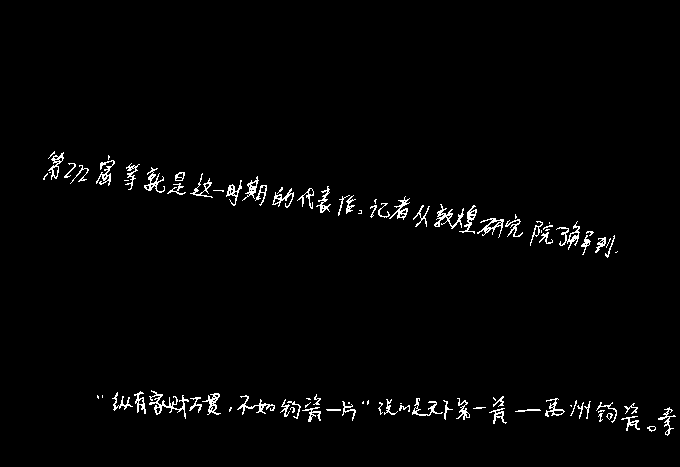 第272窟等就是这一时期的代表作。记者从敦煌研究院了解到,
“纵有家财万贯,不如钧瓷一片”说的是天下第一瓷——禹州钧瓷。李